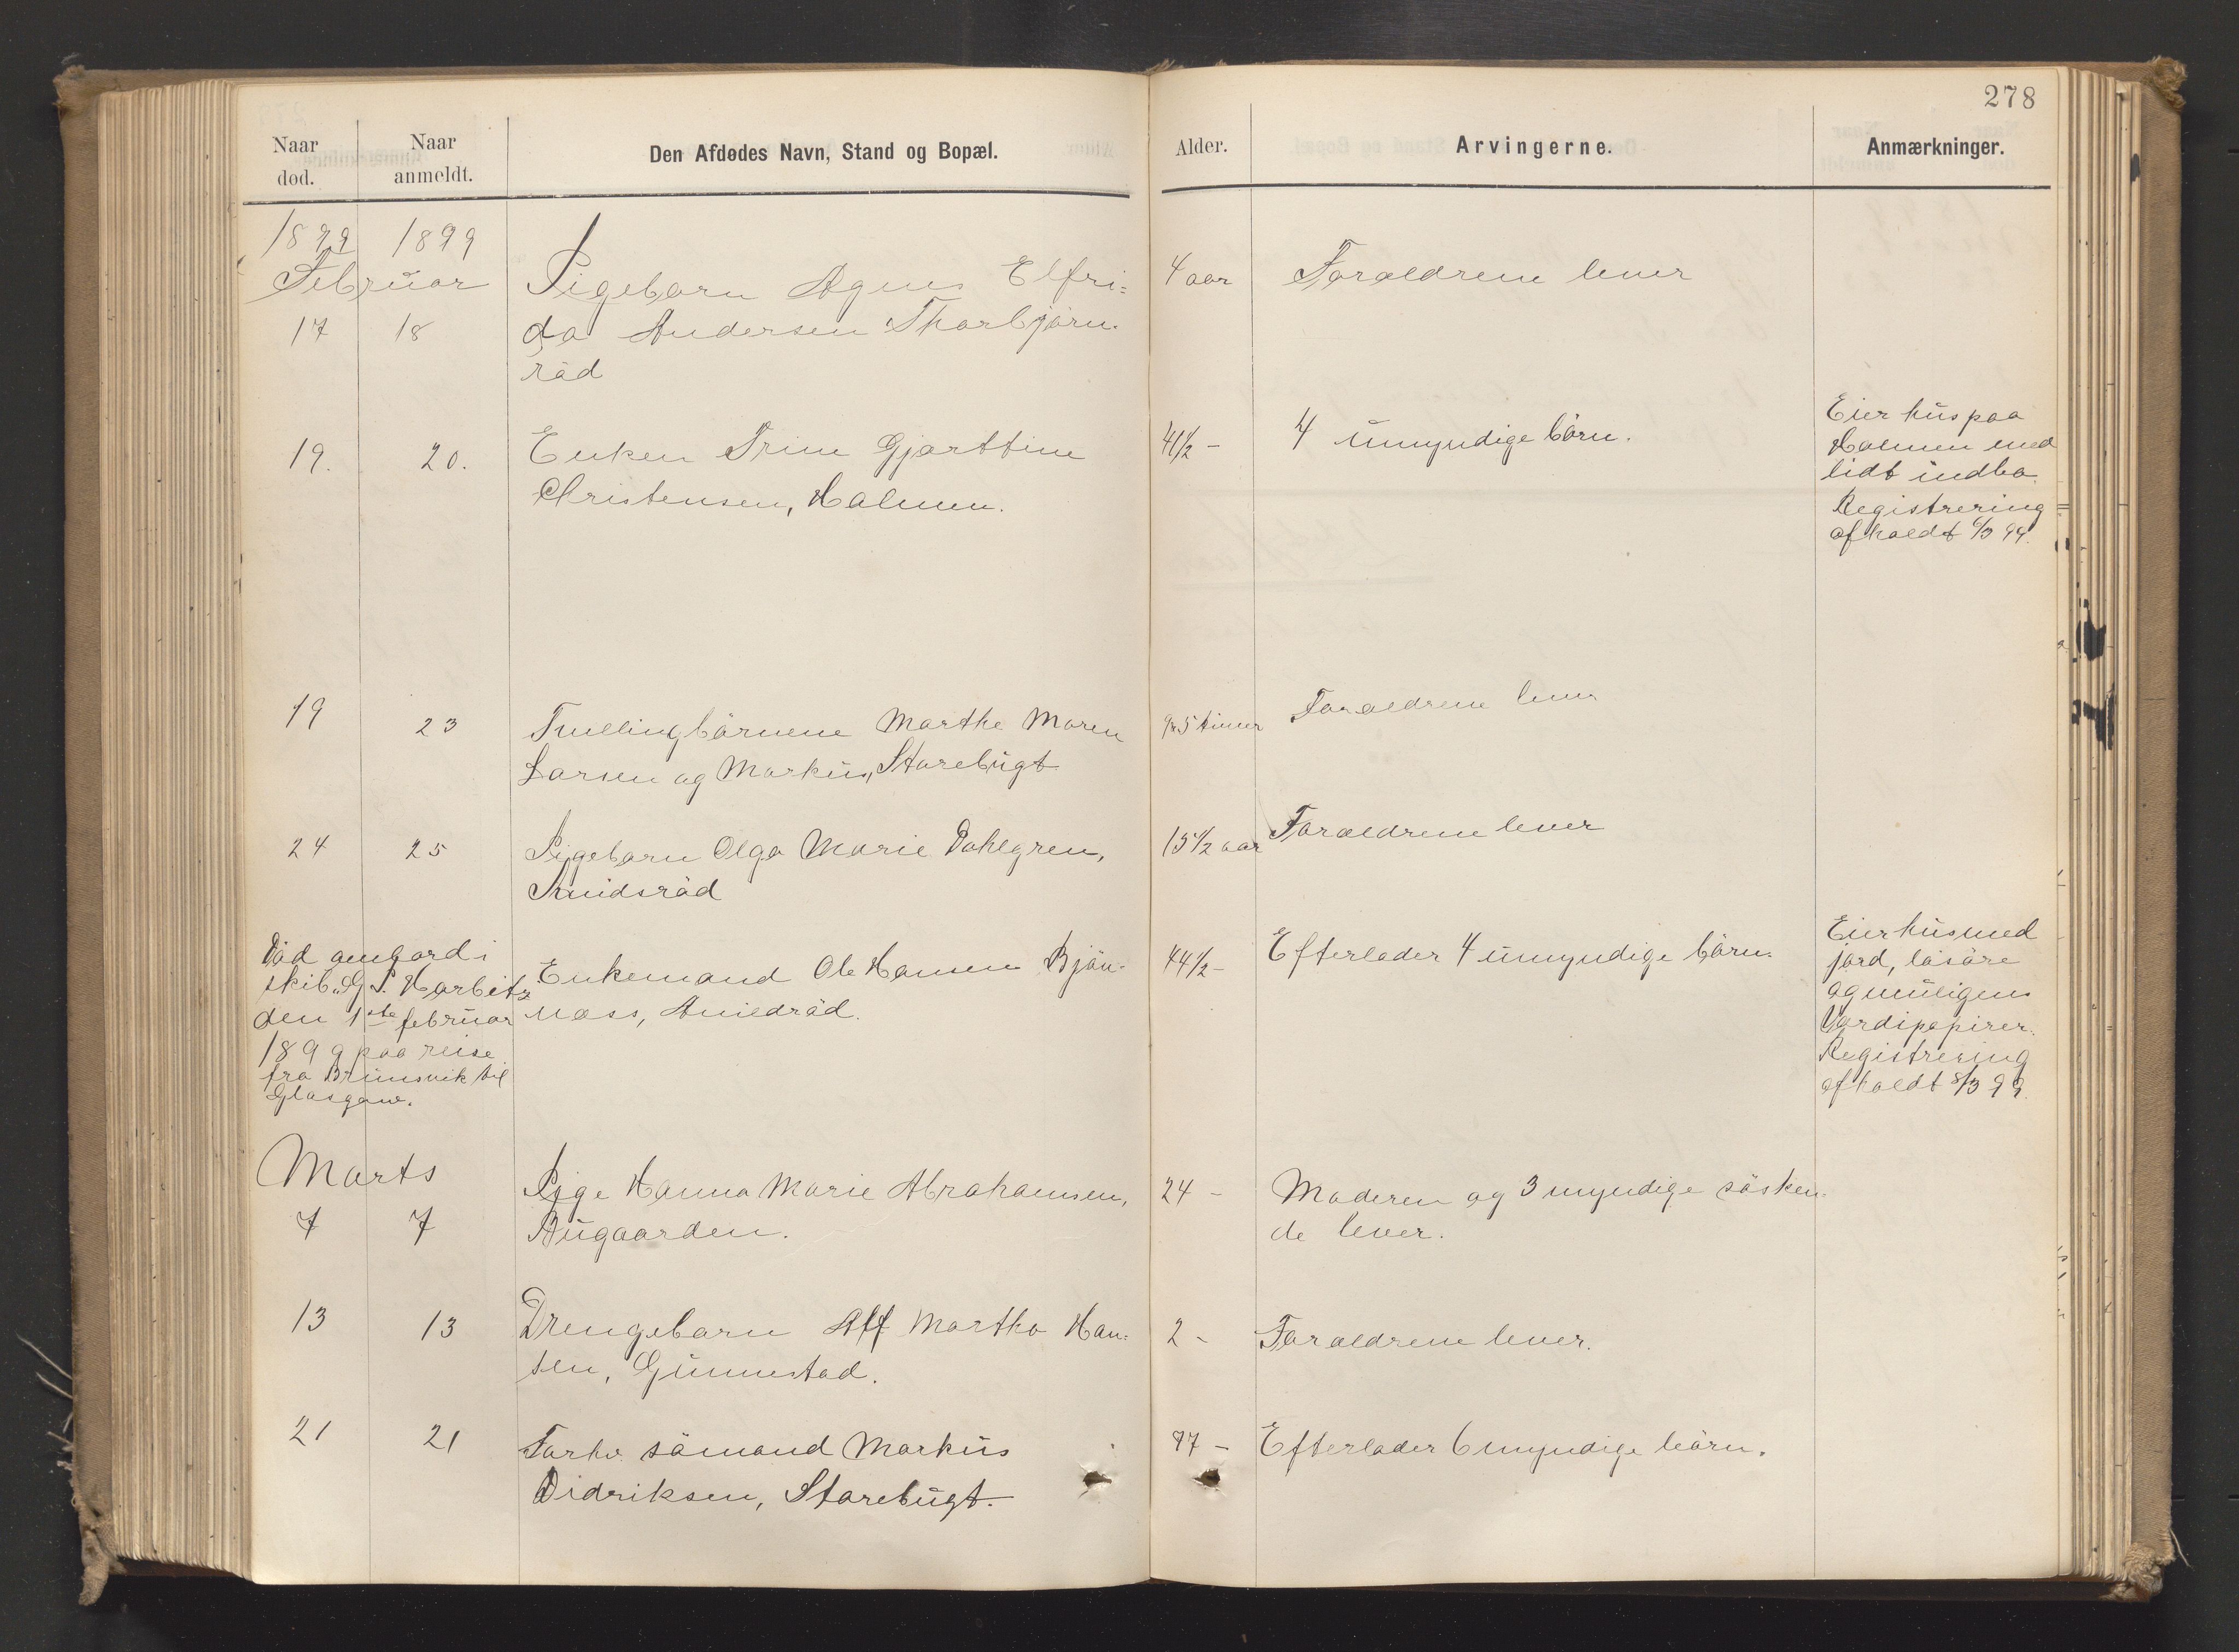 278
Naar død.
Naar anmeldt.
Den Afdødes Navn, Stand og Bopæl.
Alder.
Arvingerne.
Anmærkninger.
1899 1899
Februar
17 18
Pigebarn Agnes Elfri-
da Andersen Thorbjørn-
rød
4 aar
Forældrene lever
19. 20.
Enken Trine Gjørttine
Christensen, Holmen.
41½ -
4 umyndige børn.
Eier hus paa
Holmen med
lidt indbo.
Registrering
afholdt 6/3 99.
19 23
Tvillingbørnene Marthe Maren
Larsen og Markus, Storebugt
5 timer
Forældrene lever
24 25
Pigebarn Olga Marie Dahlgren,
Smidsrød
15½ aar
Forældrene lever
Død ombord i
skib „G. S. Harbitz
den 1ste februar
1899 paa reise
fra Brunsvik til
Glasgow.
Enkemand Ole Hansen Bjøn-
næss, Arildrød.
44½ -
Efterlader 4 umyndige børn.
Eier hus med
jord, løsøre
og muligens
Værdipapirer.
Registrering
afholdt 8/3 99.
Marts
7 7
Pige Hanna Marie Abrahamsen,
Bugaarden.
24 -
Moderen og 3 myndige søsken-
de lever.
13 13
Drengebarn Alf Martho Han-
sen, Gunnestad.
2 -
Forældrene lever.
21 21
Forhv. sømand Markus
Didriksen, Storebugt.
77 -
Efterlader 6 myndige børn.